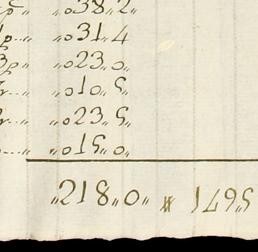 „038„2„
„031„4
„023„0„
„010„5„
„023„5„
„015„0„
„218„0„ # 1495